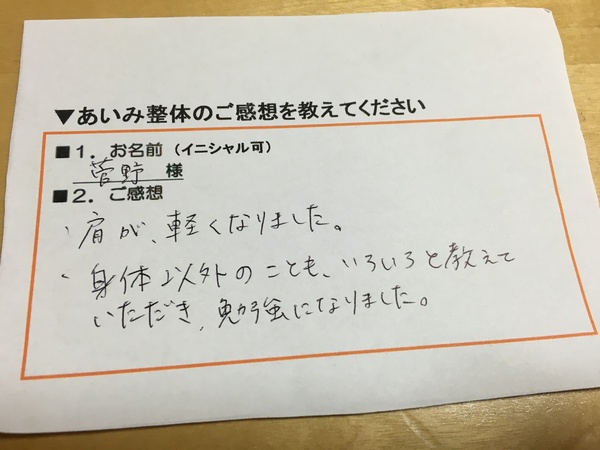 ▼あいみ整体のご感想を教えてください
■1．お名前（イニシャル可）
菅野 様
■2．ご感想
・肩が、軽くなりました。
・身体以外のことも、いろいろと教えて
いただき、勉強になりました。